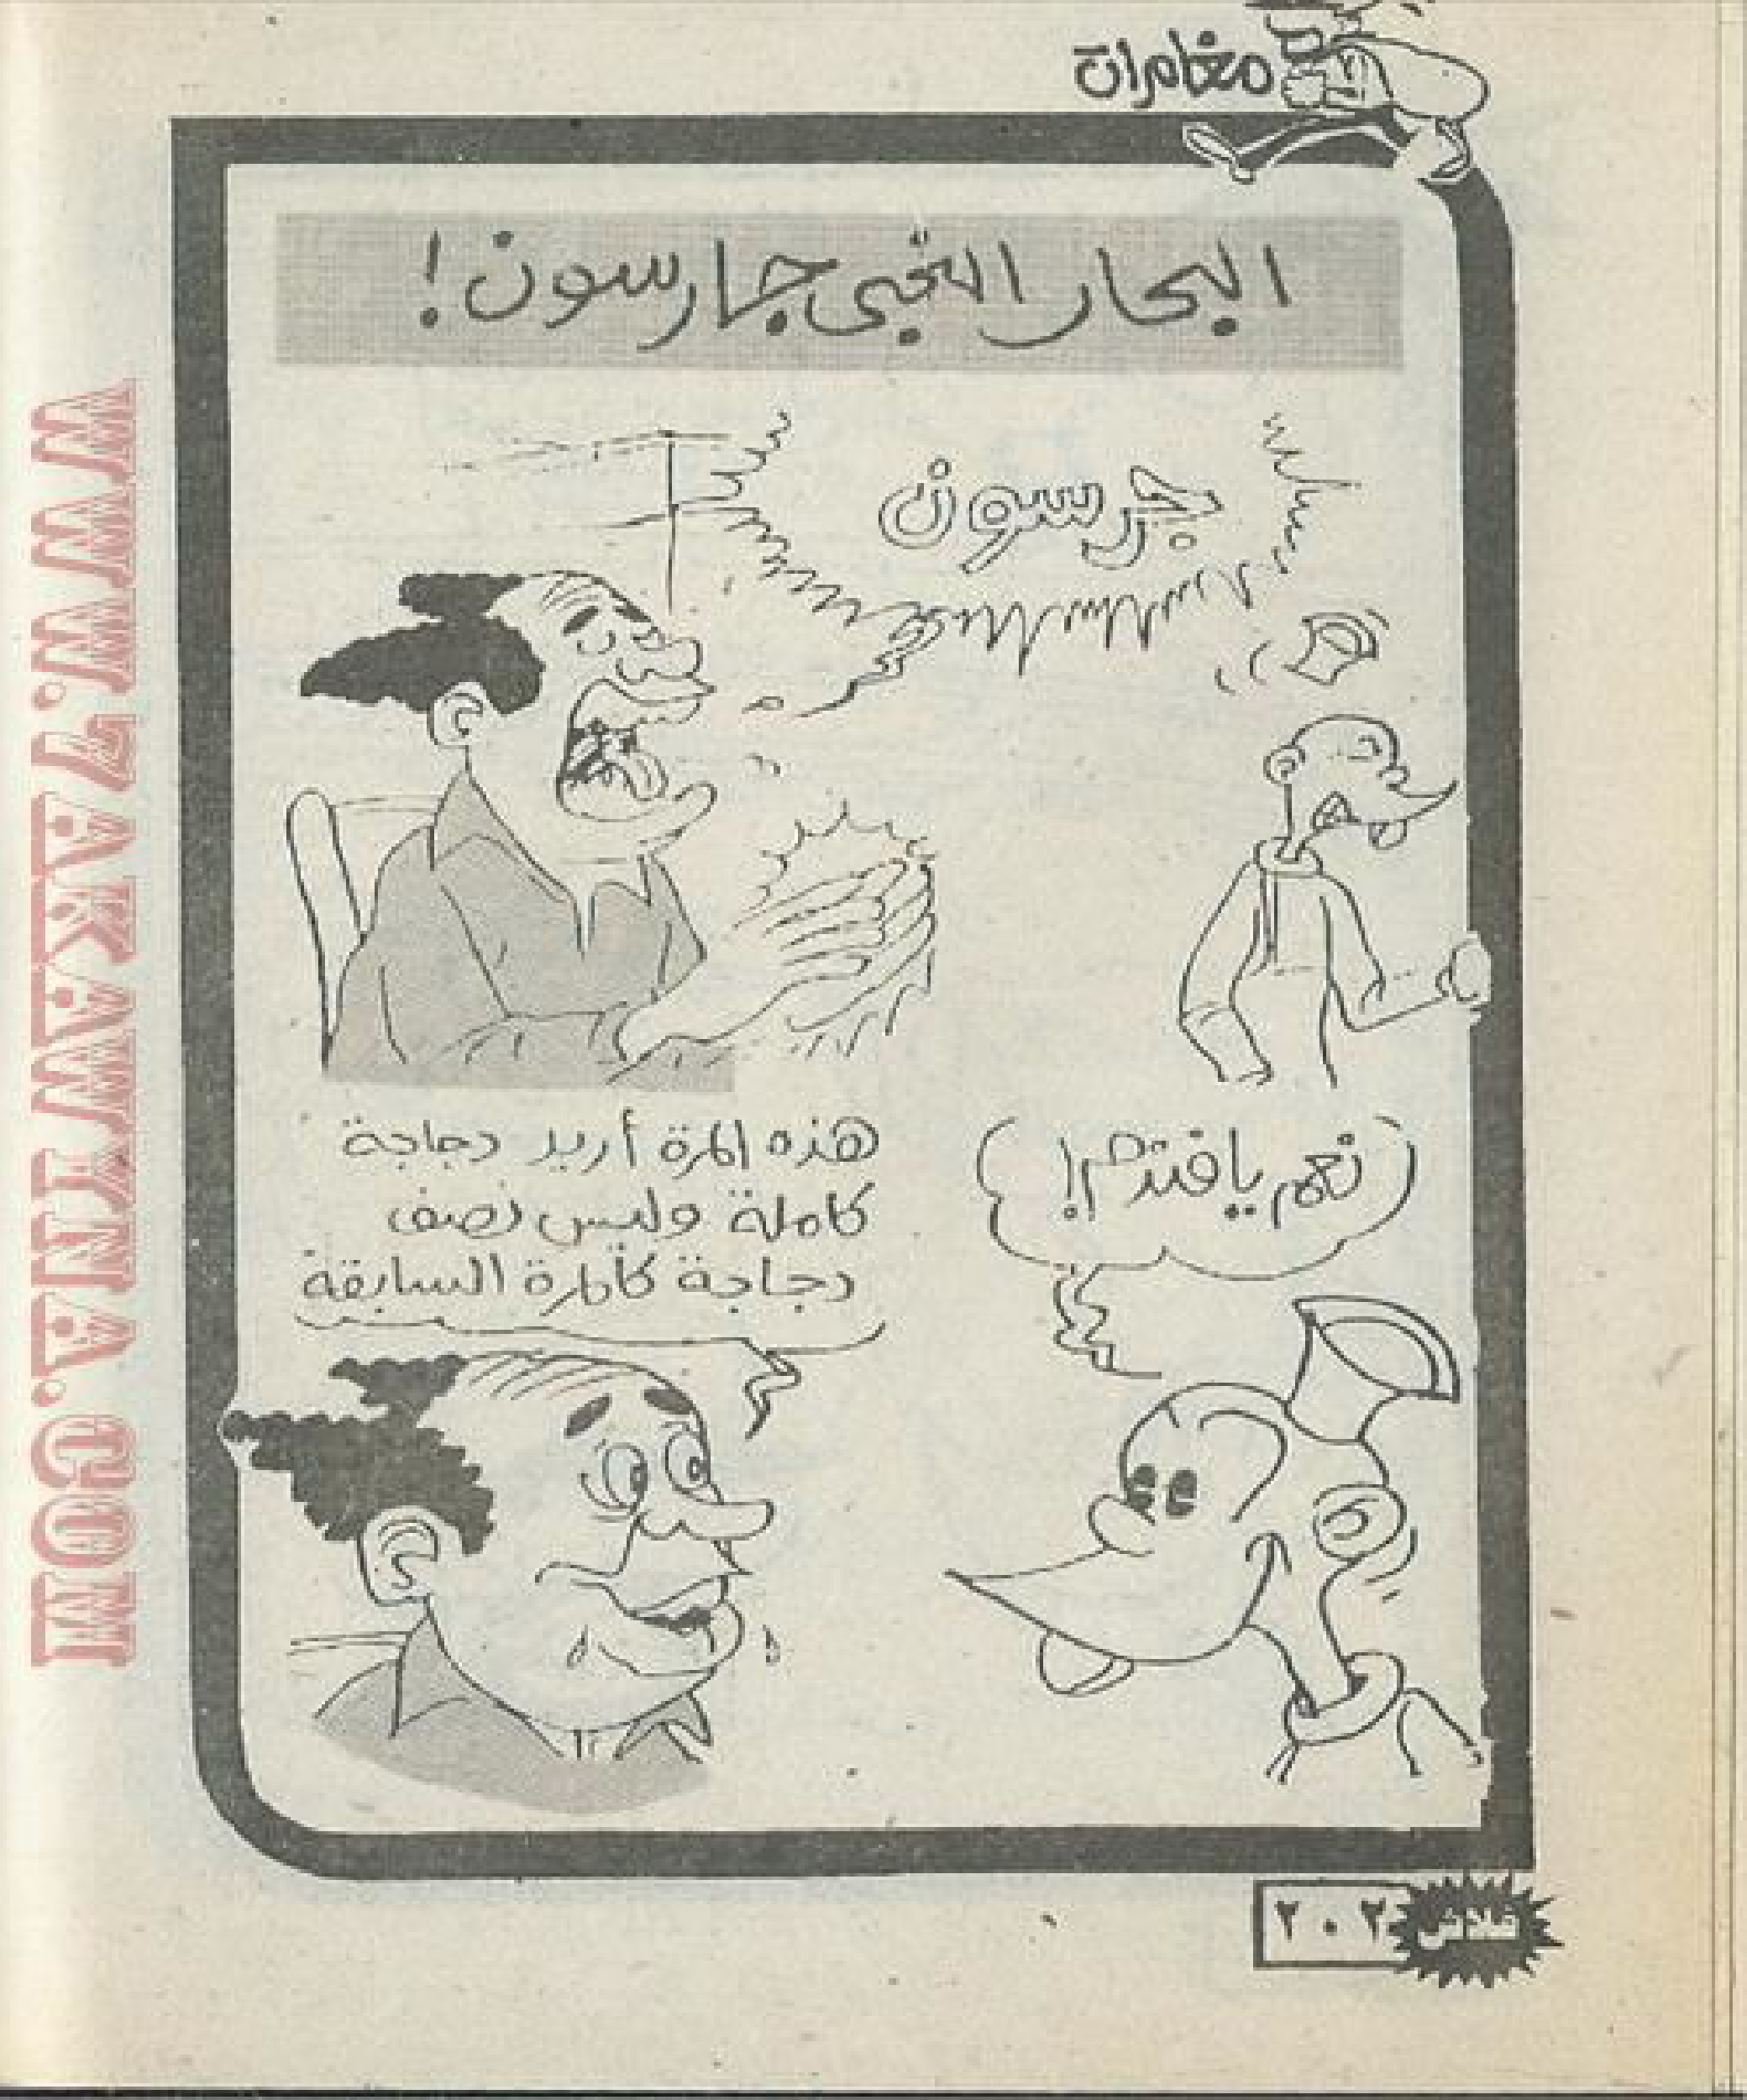 مغامرات
البحار الغبى جارسون!
جرسون
نعم يا فندم!
هذه المرة أريد دجاجة
كاملة وليس نصف
دجاجة كالمرة السابقة
فلاش
٢٠٢
WWW.7AKAWITNA.COM